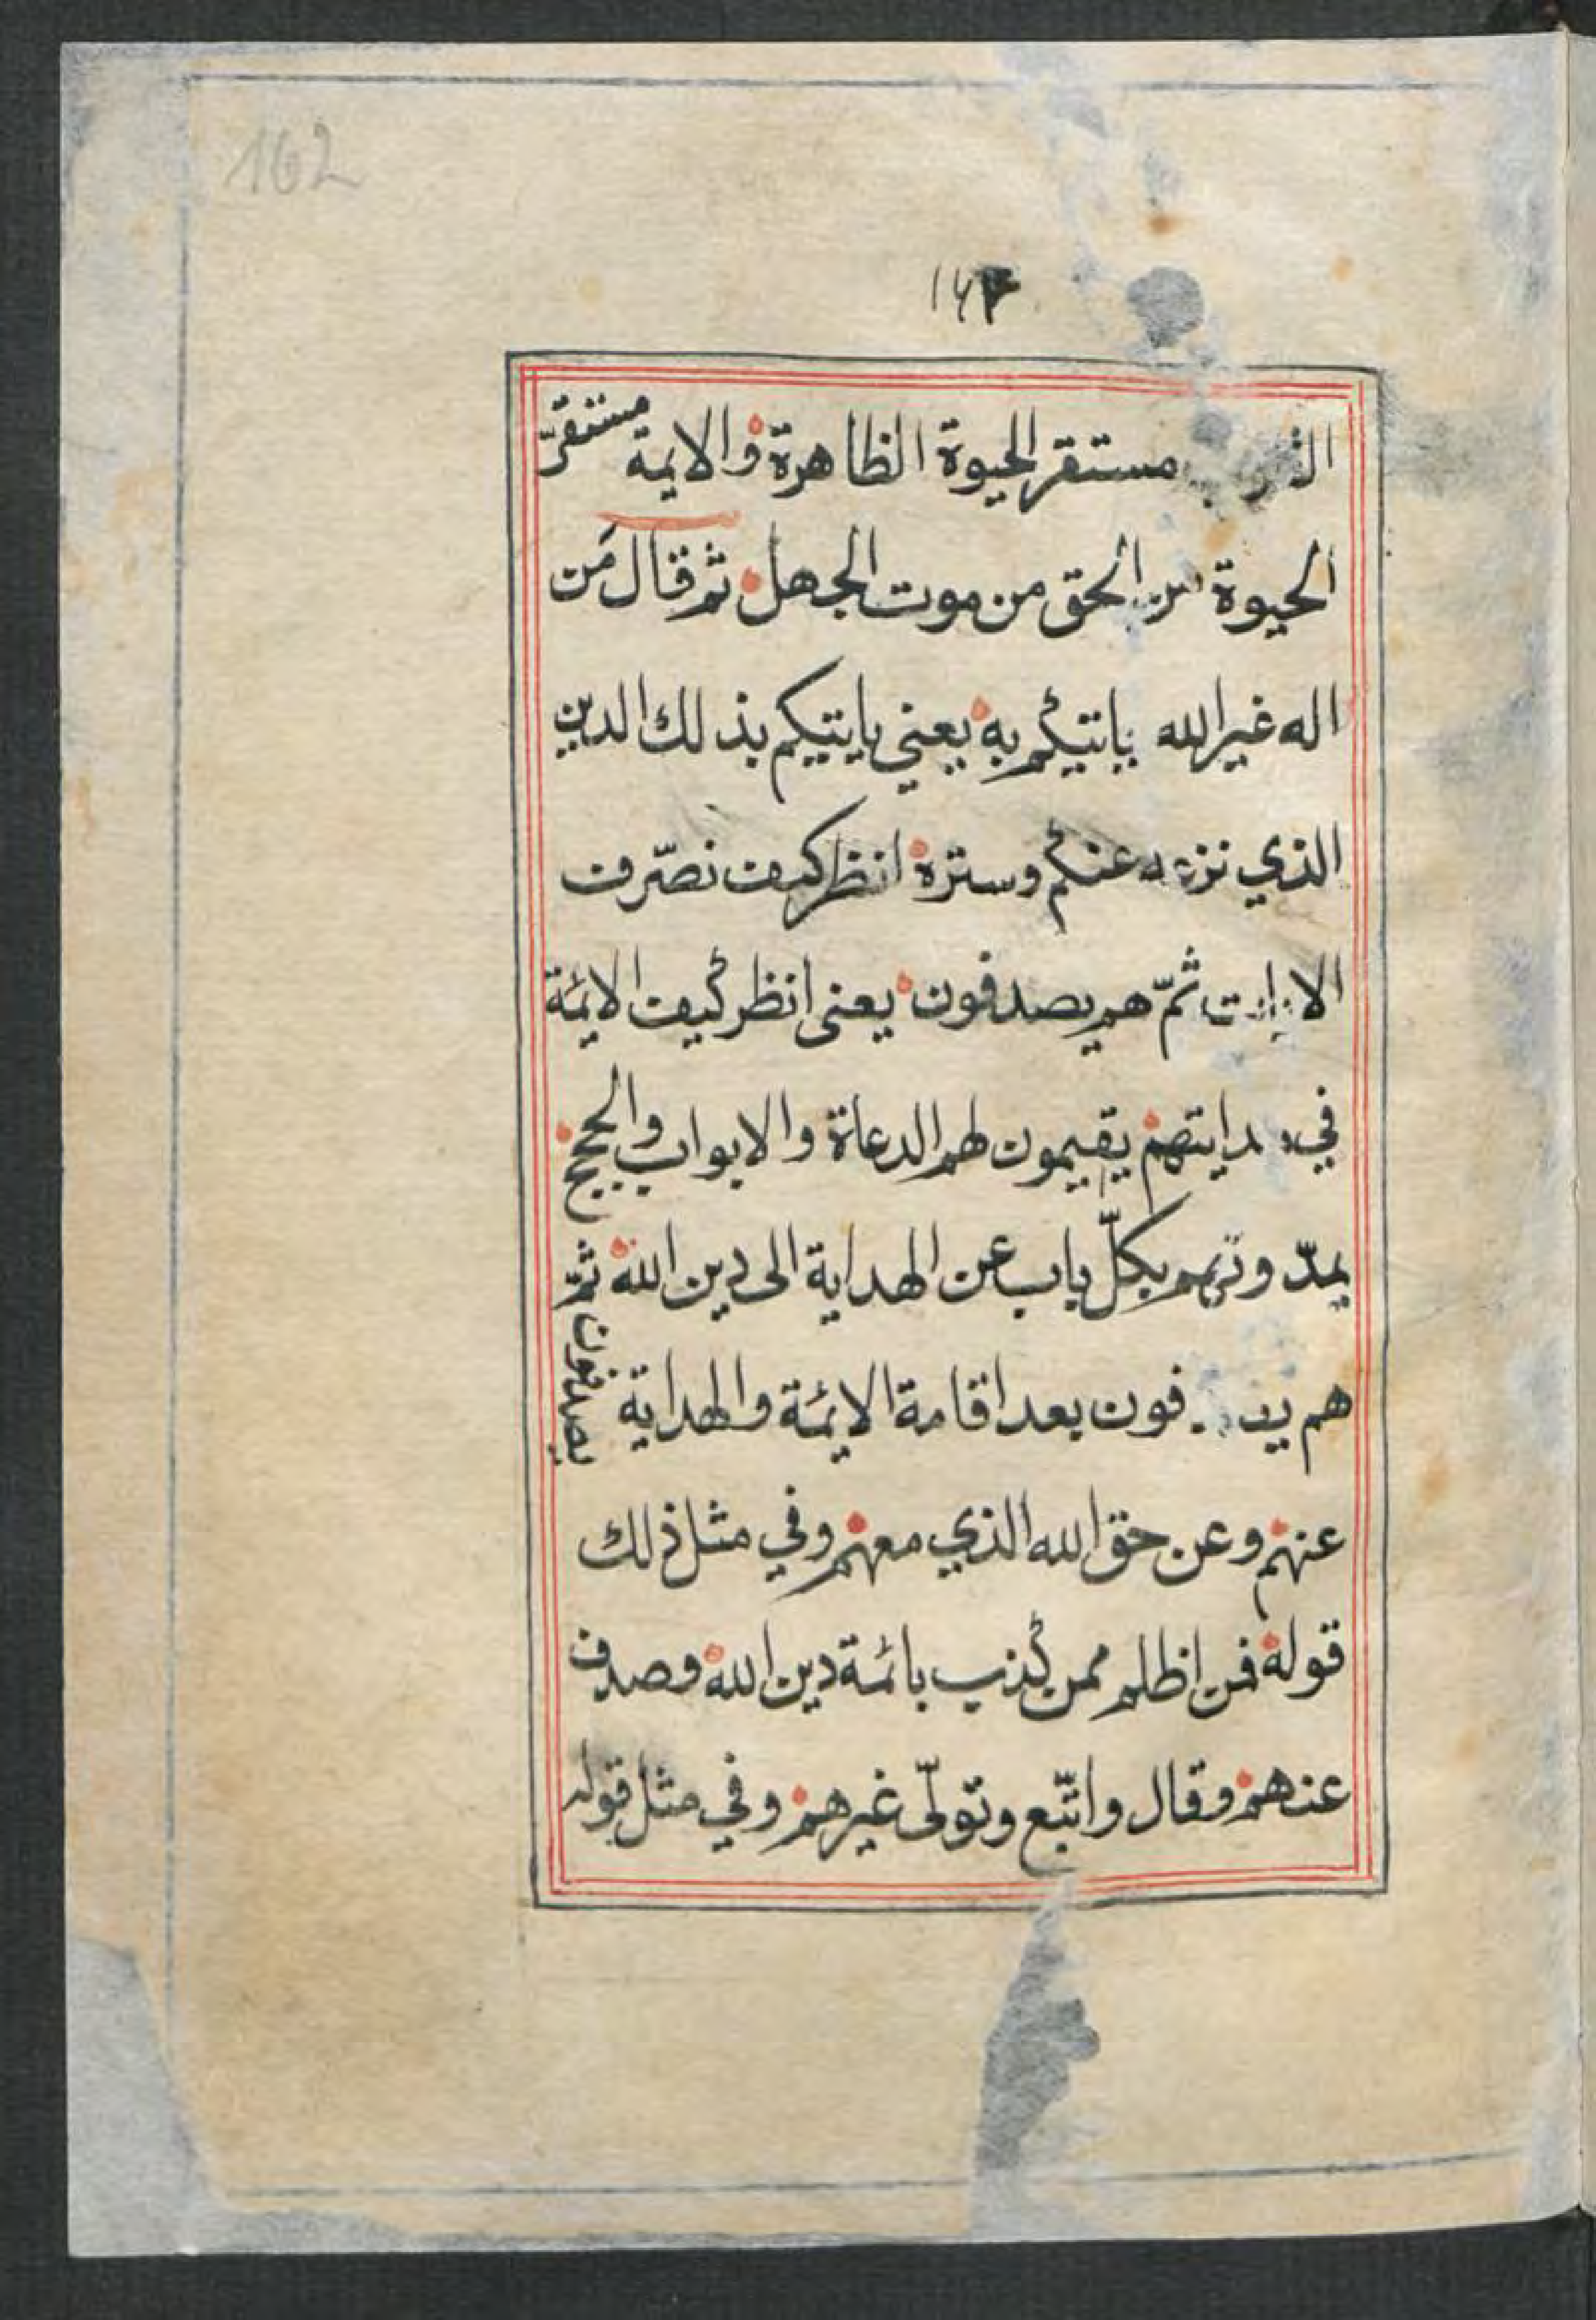 162
مستقر الحيوة الظاهرة والايمة مستقرّ
الحيوة الحق من موت الجهل ثم قال مَن
اله غير الله ياتيكم به يعني ياتيكم بذلك الدين
الذي عنكم وستره انظر كيف نصّرف
ثمّ هم يصدفون يعنى انظر كيف الايمّة
في يقيمون لهم الدعاة والابواب والحجج
بكلّ باب عن الهداية الى دين الله ثمّ
هم بعد اقامة الايمّة والهداية
يصدفون
عنهم وعن حق الله الذي معهم وفي مثل ذلك
قوله فمن اظلم ممن كذب بائمة دين الله وصدف
عنهم وقال واتّبع وتولّى غيرهم وفي مثل قوله